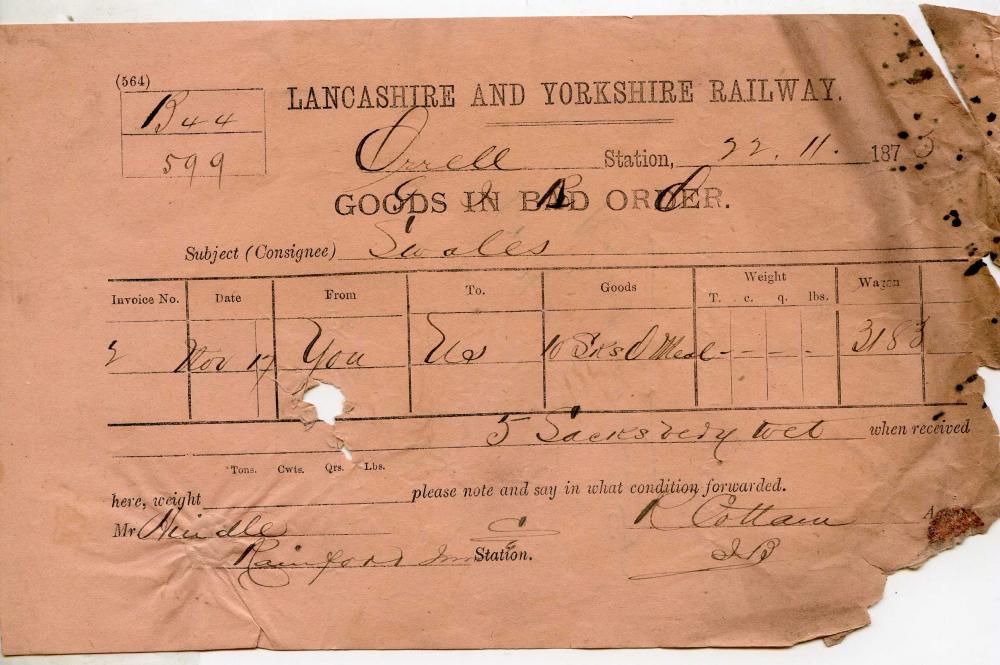 (564)
B 44
599
LANCASHIRE AND YORKSHIRE RAILWAY.
Orrell Station, 22. 11. 187
GOODS IN BAD ORDER.
Subject (Consignee) Swales
Invoice No. Date From To. Goods Weight Wagon
T. c. q. lbs.
2 Nov 17 You Us 10 Sks O Meal - - - - 3183
5 Sacks very wet when received
Tons. Cwts. Qrs. Lbs.
here, weight please note and say in what condition forwarded.
Mr Hindle R Cottam
Rainford Jun Station. JB